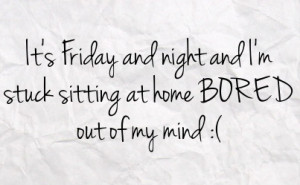 It's Friday and night and I'm
stuck sitting at home BORED
out of my mind :(